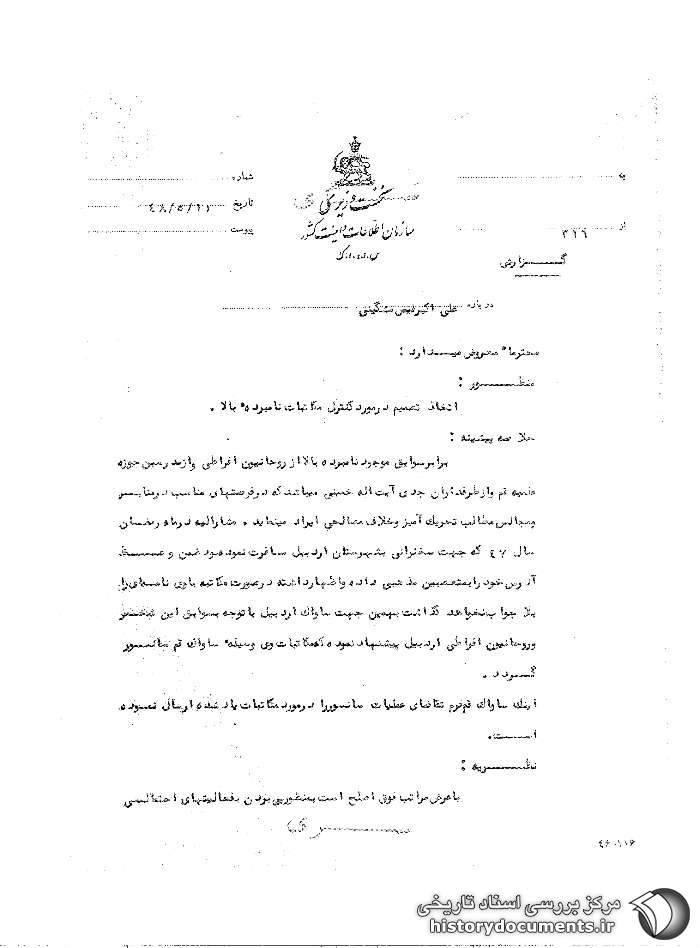 به
شماره
نخست وزیری
تاریخ ۴۸/۵/۲۱
سازمان اطلاعات و امنیت کشور
از ۳۱۶
پیوست
س.ا.و.ا.ک
گـــــزارش
درباره علی اکبر فیض مشگینی
محترما" معروض میـــدارد :
منظـــــور :
اتخاذ تصمیم در مورد کنترل مکاتبات نامبرده بالا .
خلاصه پیشینه :
برابر سوابق موجود نامبرده بالا از روحانیون افراطی و از مدرسین حوزه
علمیه قم و از طرفداران جدی آیت اله خمینی میباشد که در فرصتهای مناسب در منابـــر
و مجالس مطالب تحریک آمیز و خلاف مصالحی ایراد مینماید . مشارالیه در ماه رمضـــان
سال ۴۷ که جهت سخنرانی بشهرستان اردبیل مسافرت نموده بود ضمن وعـــــظ
آدرس خود را بمتعصبین مذهبی داده و اظهار داشته در صورت مکاتبه با وی نامه‌ای را
بلا جواب نخواهد گذاشت بهمین جهت ساواک اردبیل با توجه بسوابق این شخص
و روحانیون افراطی اردبیل پیشنهاد نموده که مکاتبات وی وسیله ساواک قم سانســـور
گـــردد .
اینک ساواک قم فرم تقاضای عملیات سانسور را در مورد مکاتبات یاد شده ارسال نمـــوده
اســـت.
نظـــــریه :
با عرض مراتب فوق اصلح است بمنظور پی بردن بفعالیتهای احتمالـــی
۴۶۰۱۱۶
مرکز بررسی اسناد تاریخی
historydocuments.ir